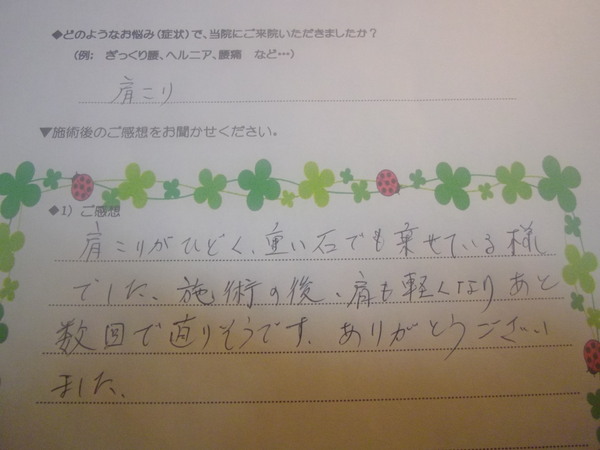 ◆どのようなお悩み(症状)で、当院にご来院いただきましたか?
(例: ぎっくり腰、ヘルニア、腰痛 など…)
肩こり
▼施術後のご感想をお聞かせください。
◆1) ご感想
肩こりがひどく、重い石でも乗せている様
でした。施術の後、肩も軽くなりあと
数回で直りそうです。ありがとうござい
ました。